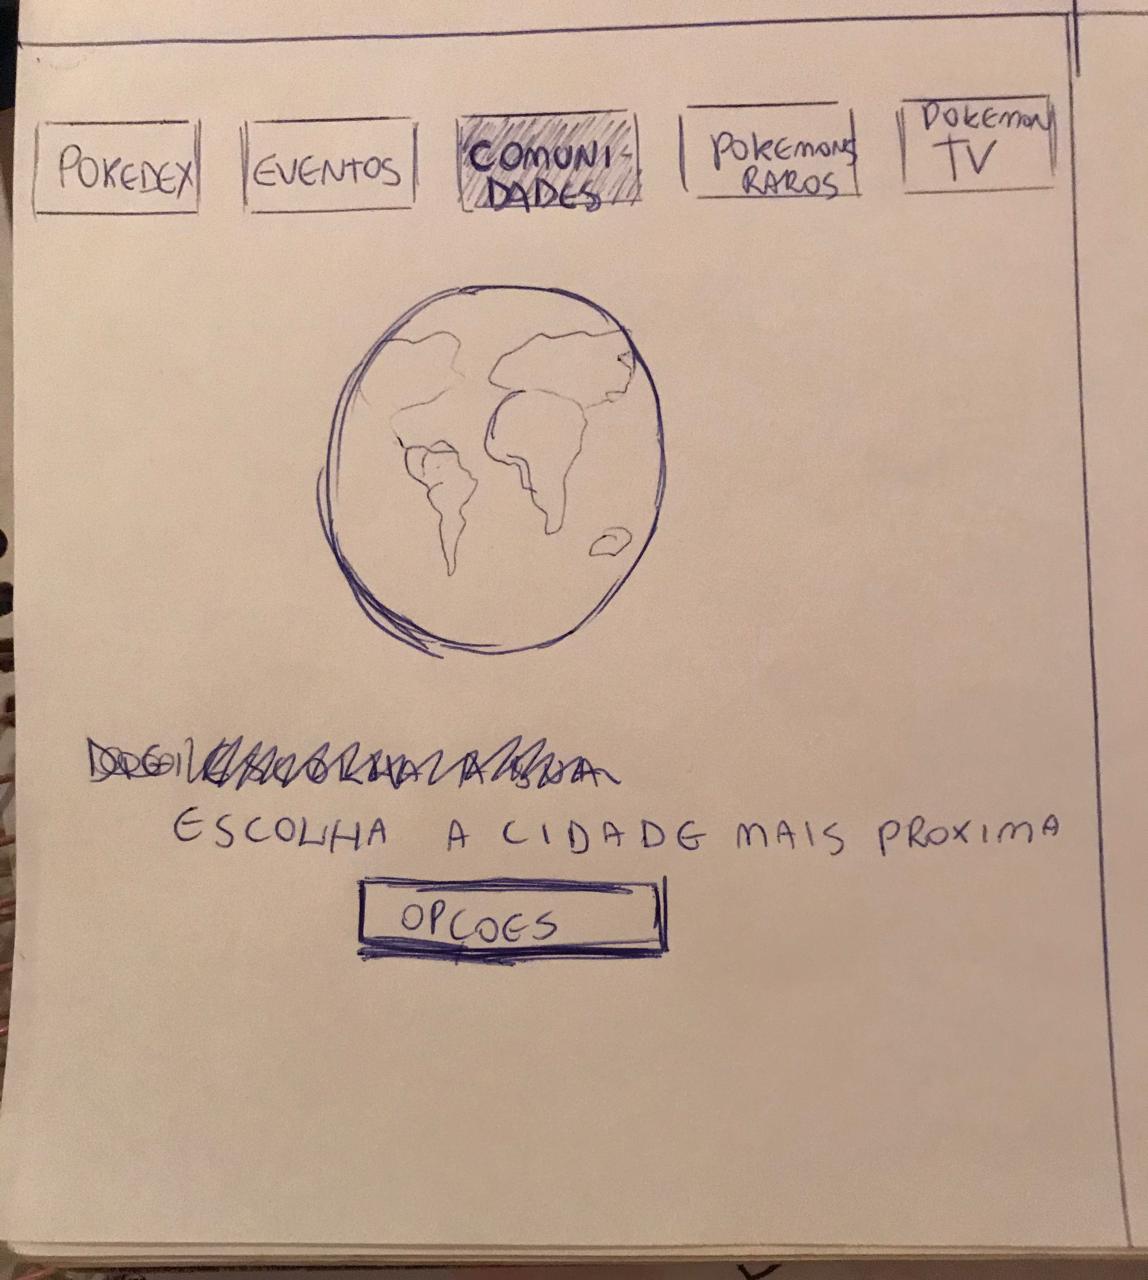 POKEDEX
EVENTOS
COMUNI-
DADES
POKEMONS
RAROS
POKEMON
TV
ESCOLHA A CIDADE MAIS PROXIMA
OPÇOES